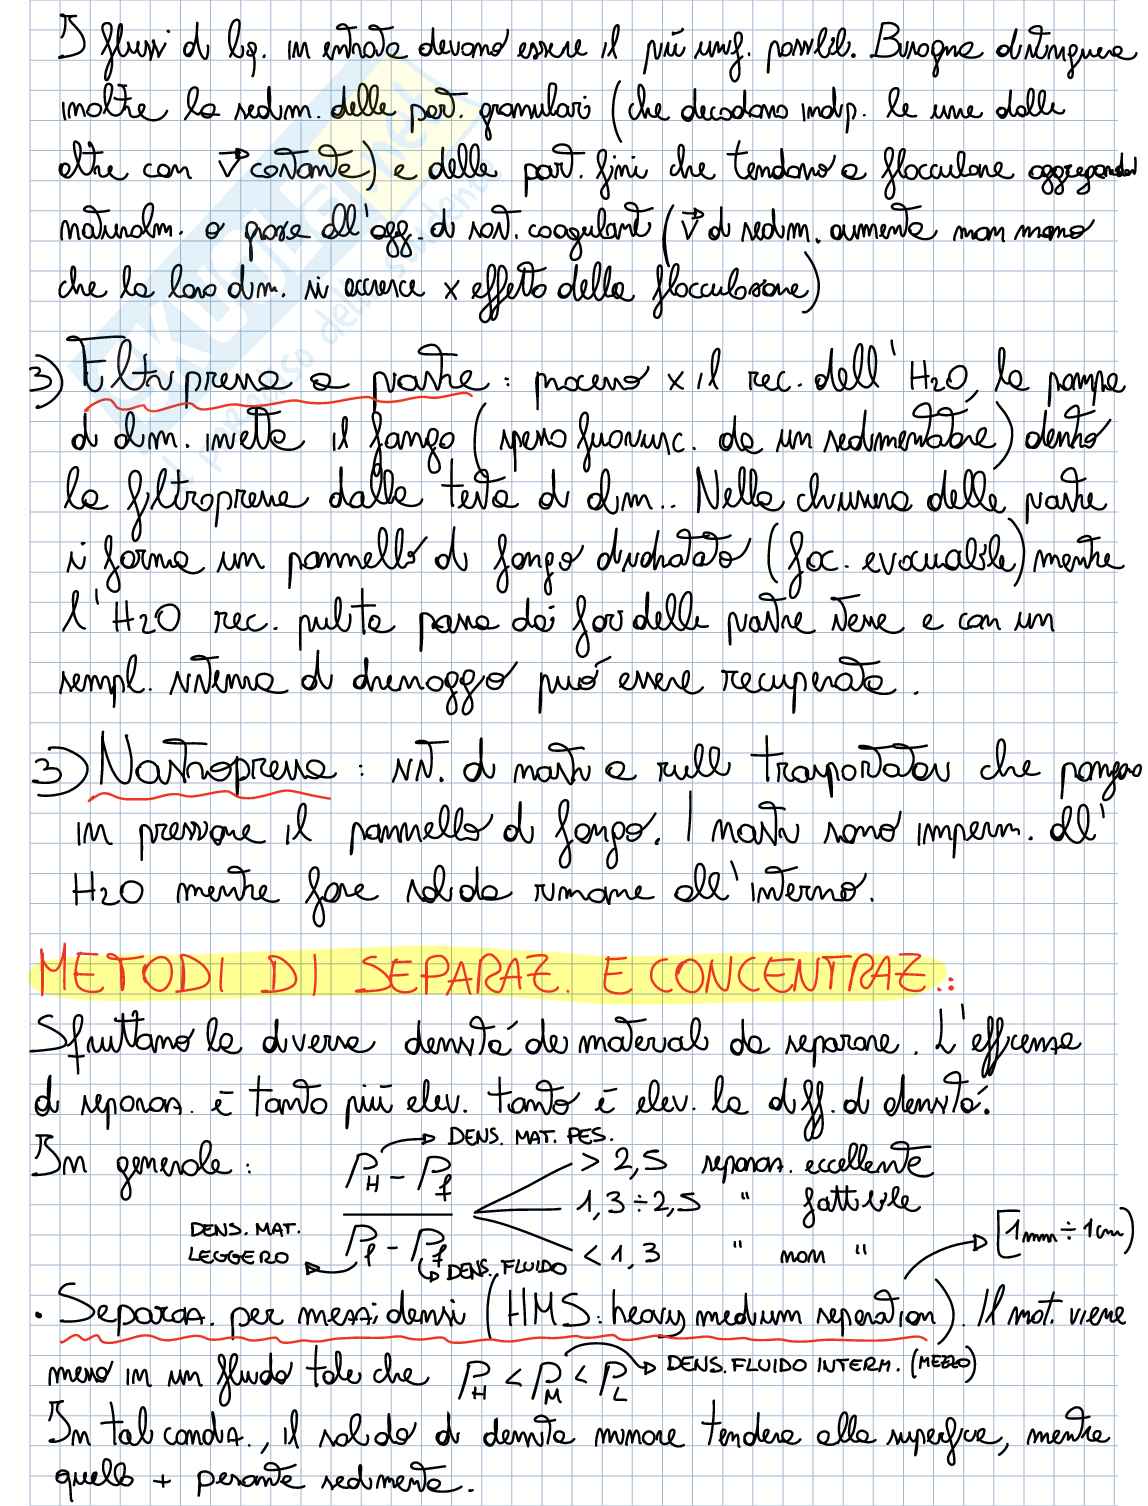 I flussi di liq. in entrata devono essere il più unif. possibil. Bisogna distinguere
inoltre la sedim. delle part. granulari (che decadono indip. le une dalle
altre con v costante) e delle part. fini che tendono a flocculare aggregandosi
naturalm. o grazie all'agg. di sost. coagulanti (v di sedim. aumenta man mano
che la loro dim. si accresce x effetto della flocculazione)
3) Filtripressa a piastre : processo x il rec. dell' H2O, la pompa
di alim. inietta il fango (spesso fuoriusc. da un sedimentatore) dentro
la filtropressa dalla testa di alim.. Nella chiusura delle piastre
si forma un pannello di fango disidratato (fac. evacuabile) mentre
l'H2O rec. pulita passa dai fori delle piastre stesse e con un
sempl. sistema di drenaggio può essere recuperata.
3) Nastropressa : sist. di nastri e rulli trasportatori che pongono
in pressione il pannello di fango. I nastri sono imperm. all'
H2O mentre fase solida rimane all'interno.
METODI DI SEPARAZ. E CONCENTRAZ.:
Sfruttano la diversa densità dei materiali da separare. L'efficienza
di separaz. è tanto più elev. tanto è elev. la diff. di densità.
DENS. MAT. PES.
In generale : ρH - ρf > 2,5 separaz. eccellente
1,3 ÷ 2,5 " fattibile
DENS. MAT. LEGGERO ρl - ρf < 1,3 " non "
[1mm ÷ 1cm)
DENS. FLUIDO
• Separaz. per mezzi densi (HMS: heavy medium separation). Il mat. viene
messo in un fluido tale che ρH < ρM < ρL DENS. FLUIDO INTERM. (MEZZO)
In tali condiz., il solido di densità minore tenderà alla superficie, mentre
quello + pesante sedimenta.